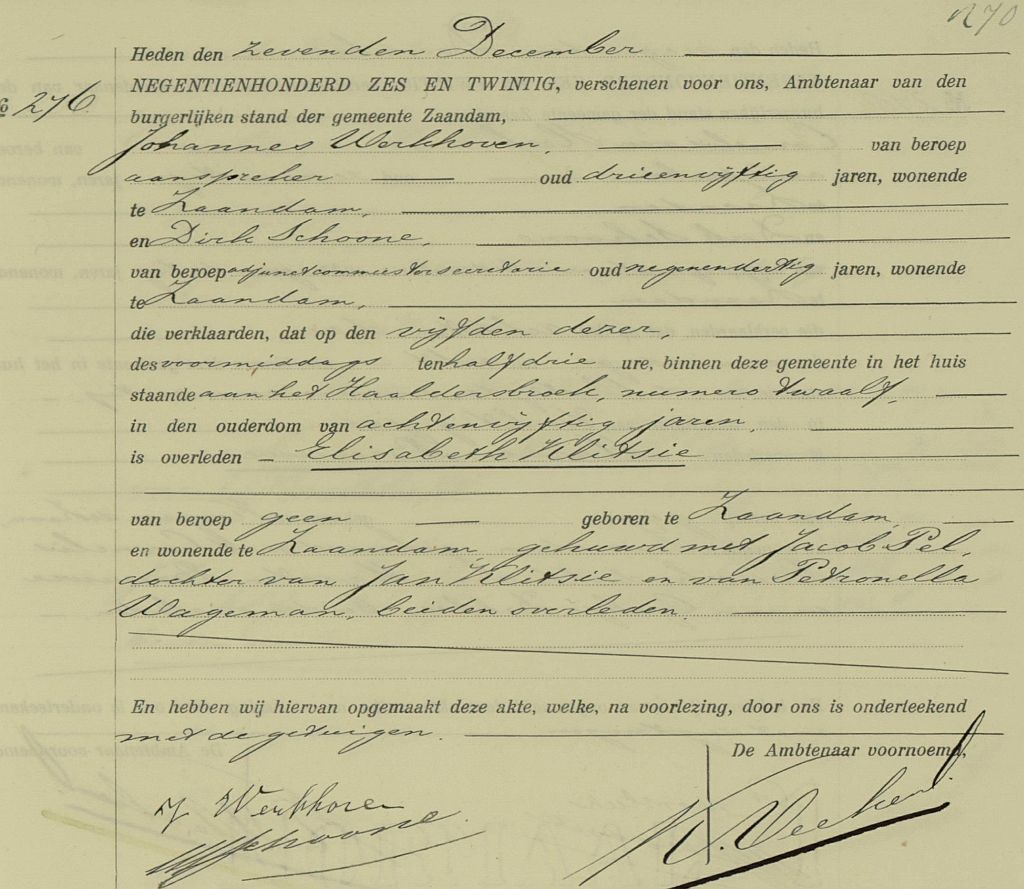 Heden den zevenden December
NEGENTIENHONDERD ZES EN TWINTIG, verschenen voor ons, Ambtenaar van den
No 276.
burgerlijken stand der gemeente Zaandam,
Johannes Werkhoven, van beroep
aanspreker oud drieenvijftig jaren, wonende
te Zaandam,
en Dirk Schoone,
van beroep adjunctcommiestersecretarie oud negenendertig jaren, wonende
te Zaandam,
die verklaarden, dat op den vijfden dezer,
des voormiddags ten half drie ure, binnen deze gemeente in het huis
staande aan het Haaldersbroek, numero twaalf,
in den ouderdom van achtenvijftig jaren,
is overleden – Elisabeth Klitsie
van beroep geen geboren te Zaandam,
en wonende te Zaandam, gehuwd met Jacob Pel,
dochter van Jan Klitsie en van Petronella
Wageman, beiden overleden.
En hebben wij hiervan opgemaakt deze akte, welke, na voorlezing, door ons is onderteekend
met de getuigen.
De Ambtenaar voornoemd,
J Werkhoven
Schoone.